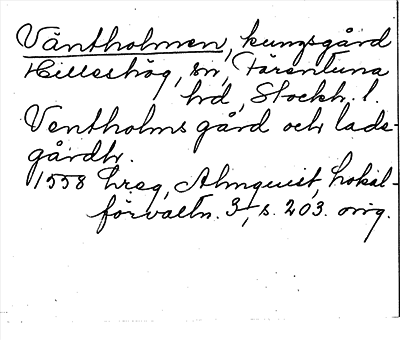 Väntholmen, kungsgård
Hilleshög, sn, Färentuna
hd, Stockh. l.
Ventholms gård och lade-
gårdh.
1558 Lreg, Almquist, Lokal-
förvaltn. 3, s. 203. orig.